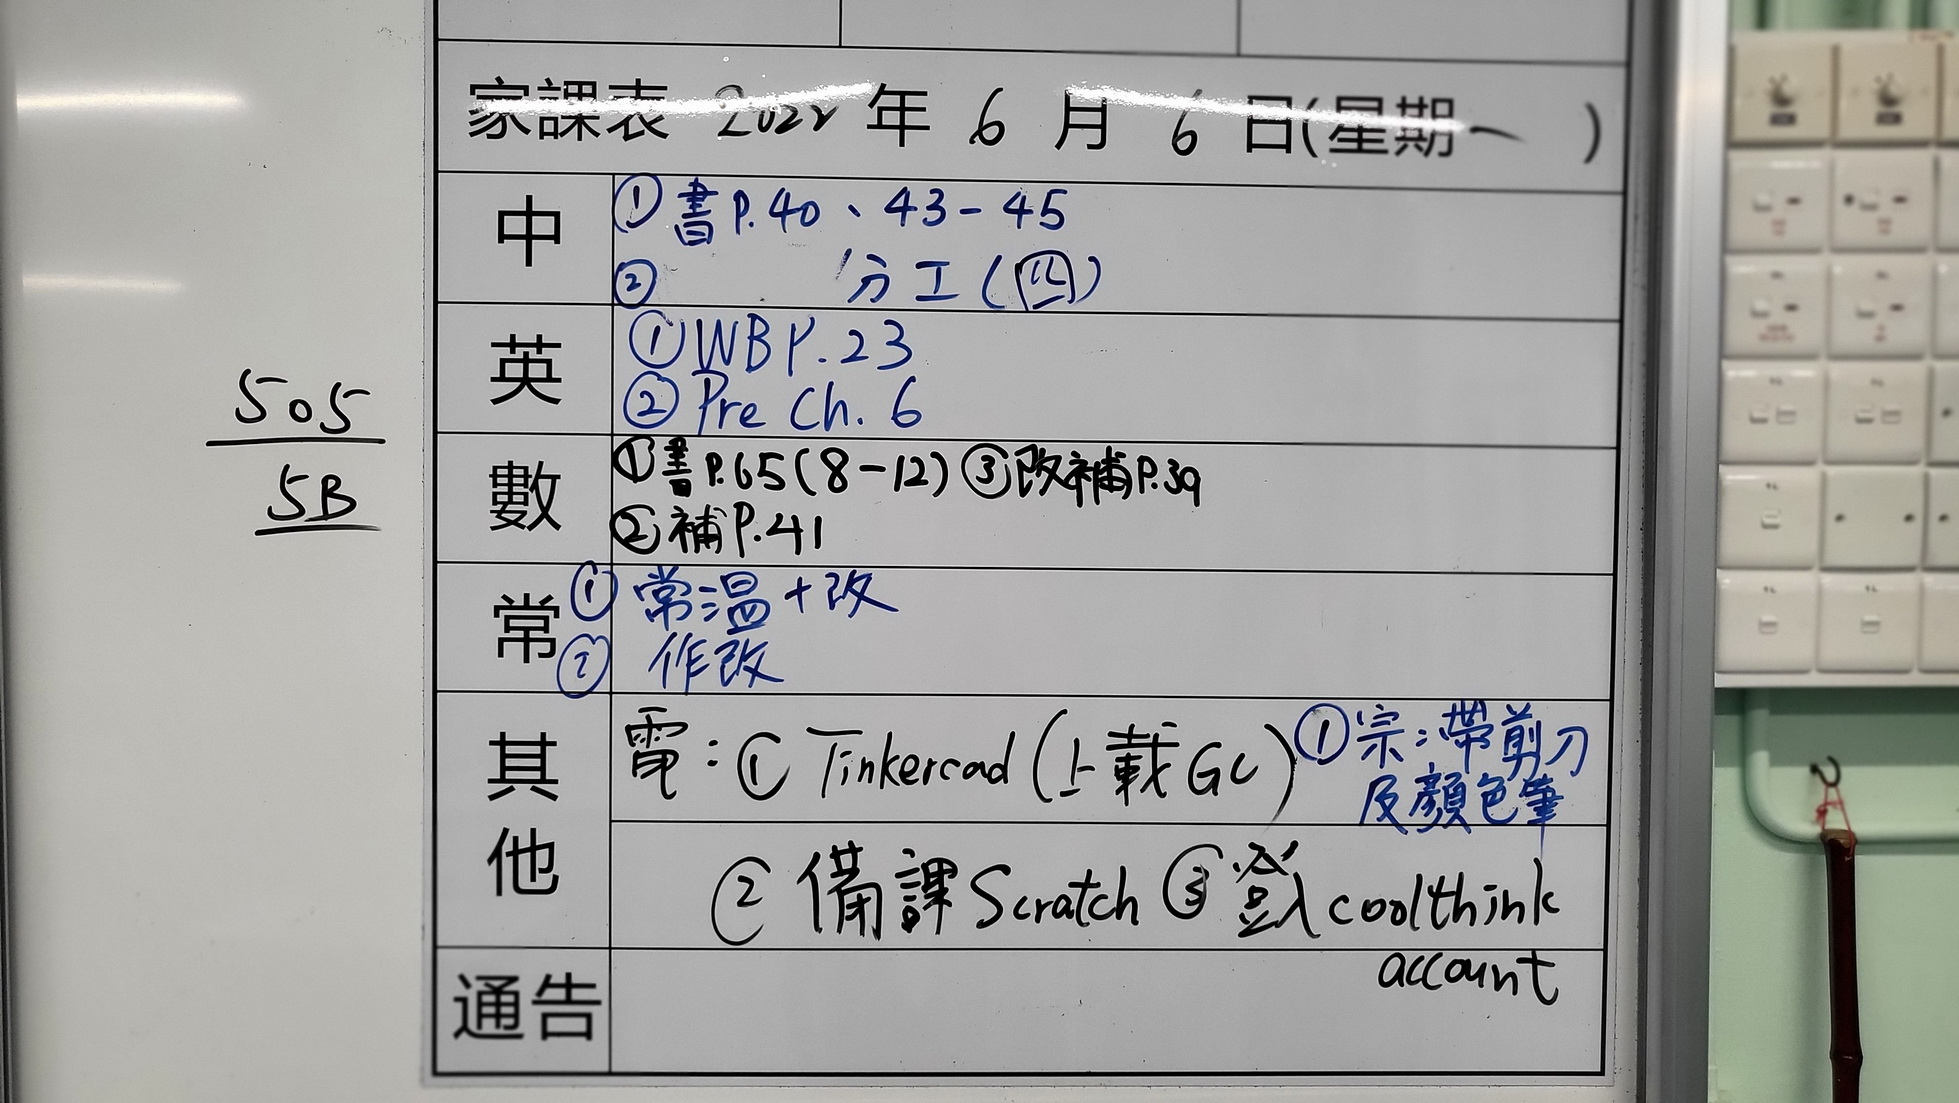 家課表 2022 年 6 月 6 日(星期一 )
中
① 書P.40、43-45
② 分工(四)
英
① WB P.23
② Pre Ch. 6
505
5B
數
①書P.65(8-12) ③改補P.39
②補P.41
常
① 常溫+改
② 作改
其他
電:① Tinkercad (上載GC)
①宗:帶剪刀
及顏色筆
② 備課Scratch ③ 登入coolthink
account
通告